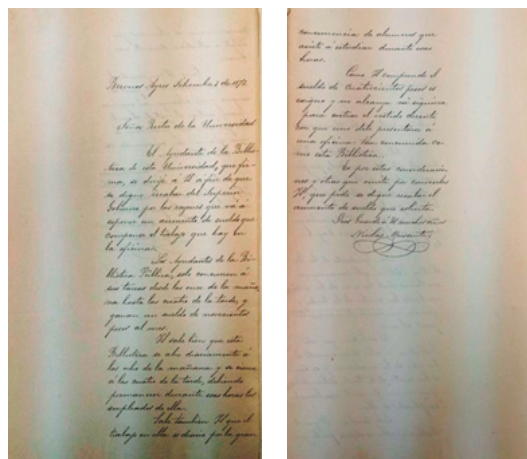 Buenos Ayres Setiembre 2 de 187
Señor Rector de la Universidad
El Ayudante de la Biblio-
teca de esta Universidad, que fir-
ma, se dirije á V. a fin de que
se digne recabar del Superior
Gobierno por las razones que vá á
esponer un aumento de sueldo que
compense el trabajo que hay en
la oficina.
Los Ayudantes de la Bi-
blioteca Pública, solo concurren á
sus tareas desde las once de la maña-
na hasta las cuatro de la tarde, y
ganan un sueldo de novecientos
pesos al mes.
V. sabe bien que esta
Biblioteca se abre diariamente á
las ocho de la mañana y se cierra
á las cuatro de la tarde, debiendo
permanecer durante esas horas los
empleados de ella.
Sabe tambien V. que el
trabajo en ella es diario por la gran
concurrencia de alumnos que
asiste á estudiar durante esas
horas.
Como V. comprende el
sueldo de cuatrocientos pesos es
exiguo y no alcanza ni siquiera
para costear el vestido decente
con que uno debe presentarse á
una oficina tan concurrida co-
mo esta Biblioteca.
Es por estas consideracio-
nes y otras que omito por conocerlas
V., que pido se digne recabar el
aumento de sueldo que solicito.
Dios Guarde á V. muchos años
Nicolas